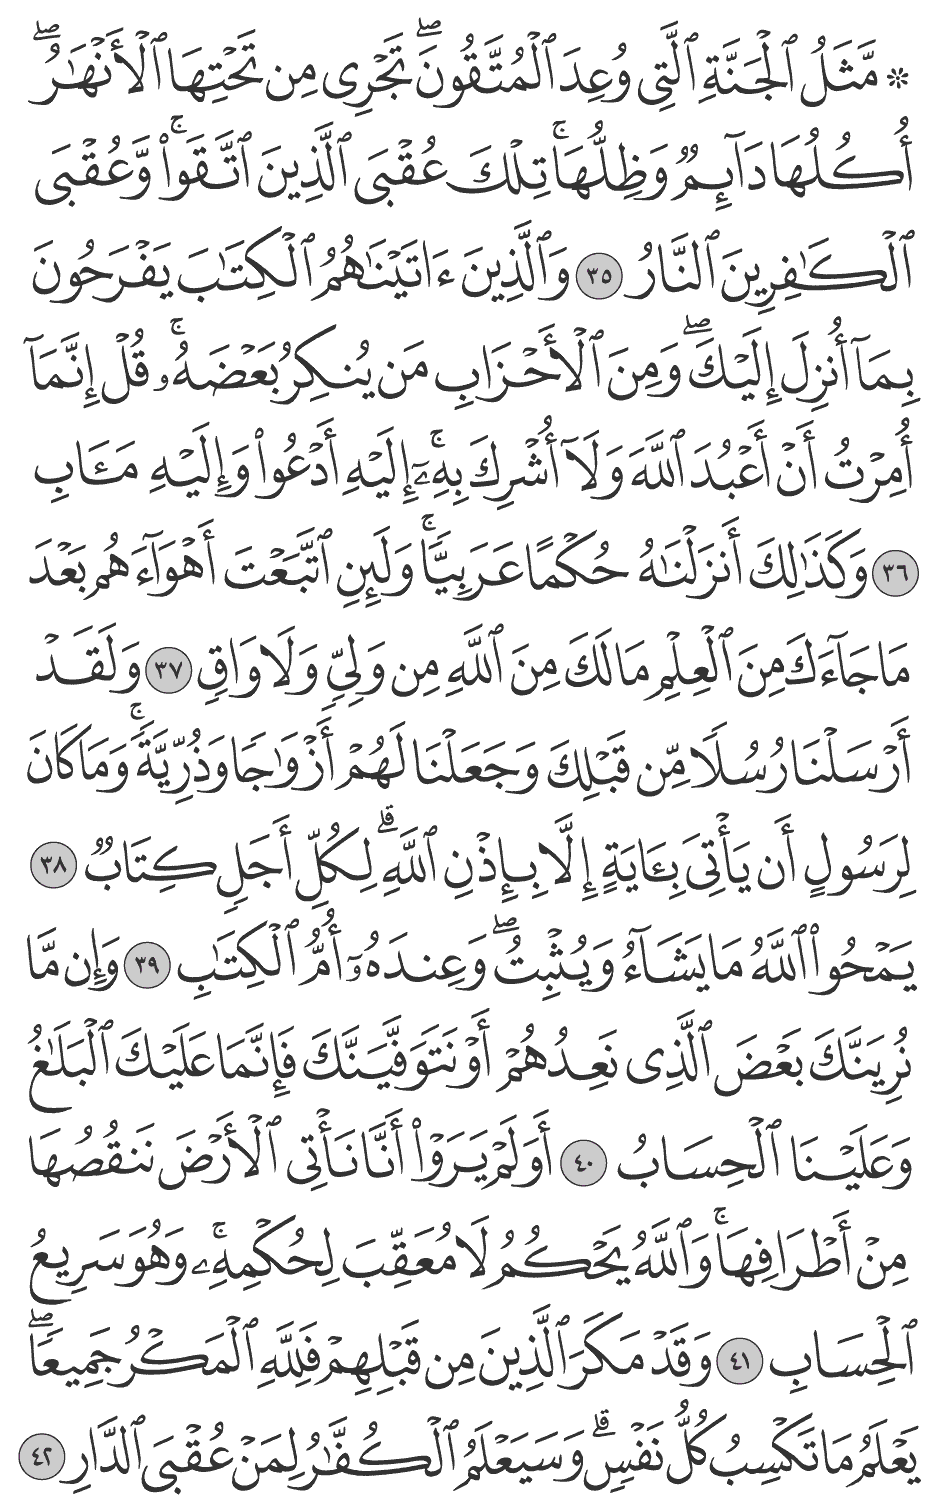 ۞ مَّثَلُ ٱلْجَنَّةِ ٱلَّتِى وُعِدَ ٱلْمُتَّقُونَۖ تَجْرِى مِن تَحْتِهَا ٱلْأَنْهَٰرُۖ
أُكُلُهَا دَآئِمٌ وَظِلُّهَاۚ تِلْكَ عُقْبَى ٱلَّذِينَ ٱتَّقَوا۟ۚ وَّعُقْبَى
ٱلْكَٰفِرِينَ ٱلنَّارُ ٣٥ وَٱلَّذِينَ ءَاتَيْنَٰهُمُ ٱلْكِتَٰبَ يَفْرَحُونَ
بِمَآ أُنزِلَ إِلَيْكَۖ وَمِنَ ٱلْأَحْزَابِ مَن يُنكِرُ بَعْضَهُۥۚ قُلْ إِنَّمَآ
أُمِرْتُ أَنْ أَعْبُدَ ٱللَّهَ وَلَآ أُشْرِكَ بِهِۦٓۚ إِلَيْهِ أَدْعُوا۟ وَإِلَيْهِ مَـَٔابِ
٣٦ وَكَذَٰلِكَ أَنزَلْنَٰهُ حُكْمًا عَرَبِيًّاۚ وَلَئِنِ ٱتَّبَعْتَ أَهْوَآءَهُم بَعْدَ
مَا جَآءَكَ مِنَ ٱلْعِلْمِ مَا لَكَ مِنَ ٱللَّهِ مِن وَلِىٍّ وَلَا وَاقٍ ٣٧ وَلَقَدْ
أَرْسَلْنَا رُسُلًا مِّن قَبْلِكَ وَجَعَلْنَا لَهُمْ أَزْوَٰجًا وَذُرِّيَّةًۚ وَمَا كَانَ
لِرَسُولٍ أَن يَأْتِىَ بِـَٔايَةٍ إِلَّا بِإِذْنِ ٱللَّهِۗ لِكُلِّ أَجَلٍ كِتَابٌ ٣٨
يَمْحُوا۟ ٱللَّهُ مَا يَشَآءُ وَيُثْبِتُۖ وَعِندَهُۥٓ أُمُّ ٱلْكِتَٰبِ ٣٩ وَإِن مَّا
نُرِيَنَّكَ بَعْضَ ٱلَّذِى نَعِدُهُمْ أَوْ نَتَوَفَّيَنَّكَ فَإِنَّمَا عَلَيْكَ ٱلْبَلَٰغُ
وَعَلَيْنَا ٱلْحِسَابُ ٤٠ أَوَلَمْ يَرَوْا۟ أَنَّا نَأْتِى ٱلْأَرْضَ نَنقُصُهَا
مِنْ أَطْرَافِهَاۚ وَٱللَّهُ يَحْكُمُ لَا مُعَقِّبَ لِحُكْمِهِۦۚ وَهُوَ سَرِيعُ
ٱلْحِسَابِ ٤١ وَقَدْ مَكَرَ ٱلَّذِينَ مِن قَبْلِهِمْ فَلِلَّهِ ٱلْمَكْرُ جَمِيعًاۖ
يَعْلَمُ مَا تَكْسِبُ كُلُّ نَفْسٍۗ وَسَيَعْلَمُ ٱلْكُفَّٰرُ لِمَنْ عُقْبَى ٱلدَّارِ ٤٢